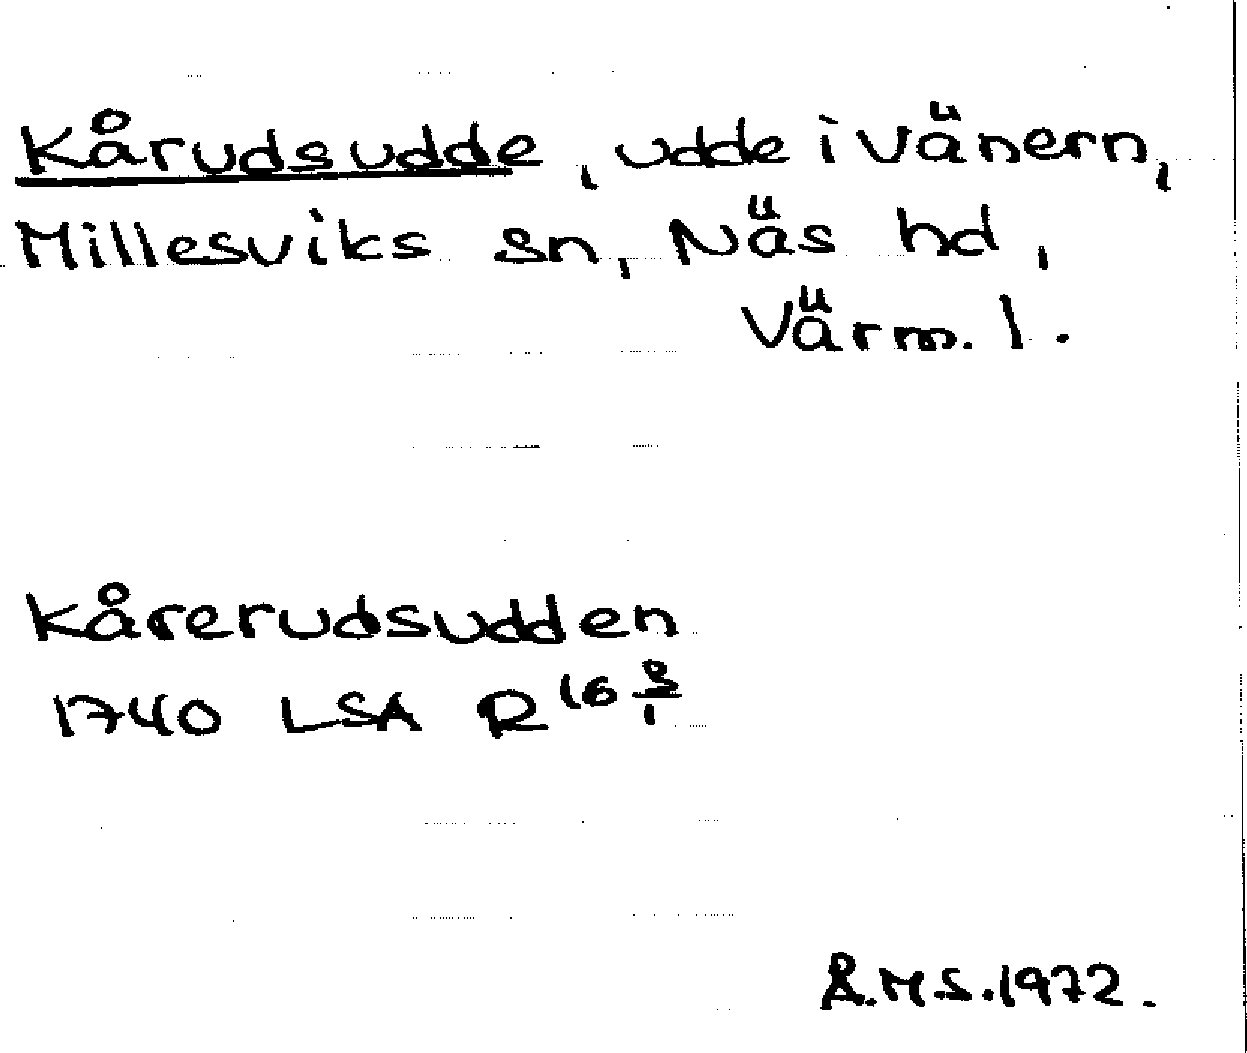 Kårudsudde, udde i Vänern,
Millesviks sn, Näs hd,
Värm. l.
Kårerudsudden
1740 LSA R 16 8/1
Å.M.S. 1972.